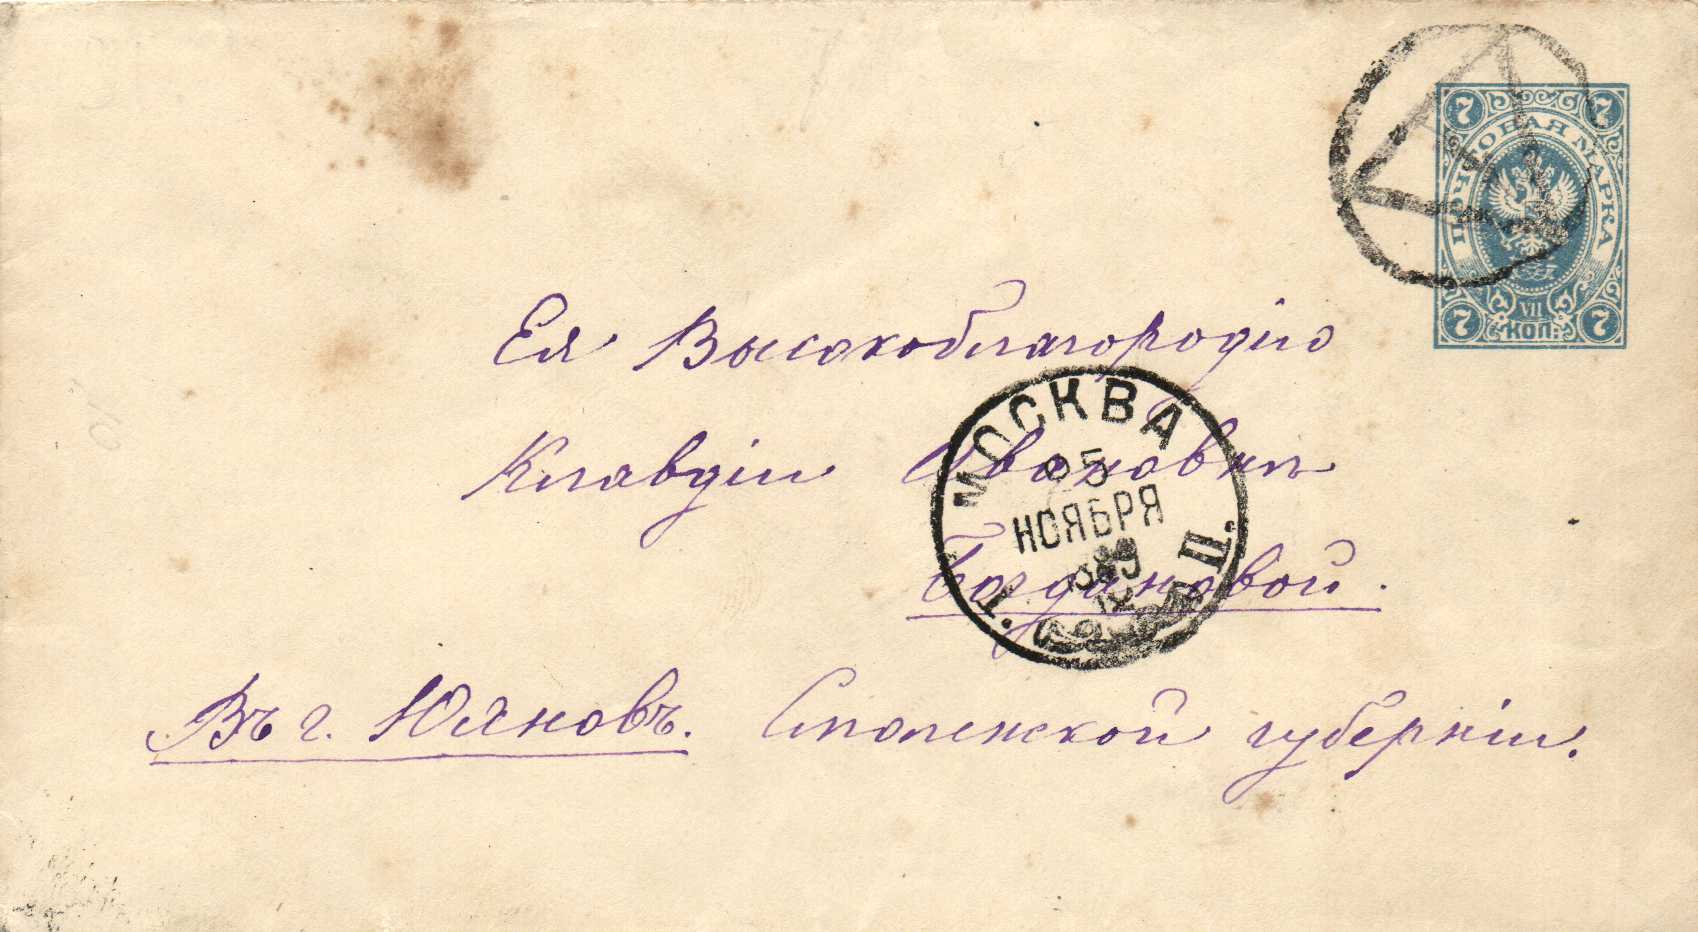 7 7
ПОЧТОВАЯ МАРКА
VII
КОП.
7 7
Ея Высокоблагородію
Клавдіи Ивановнѣ
Богдановой.
Въ г. Юхновъ. Смоленской губерніи.
МОСКВА
25
НОЯБРЯ
1889
Г. П.